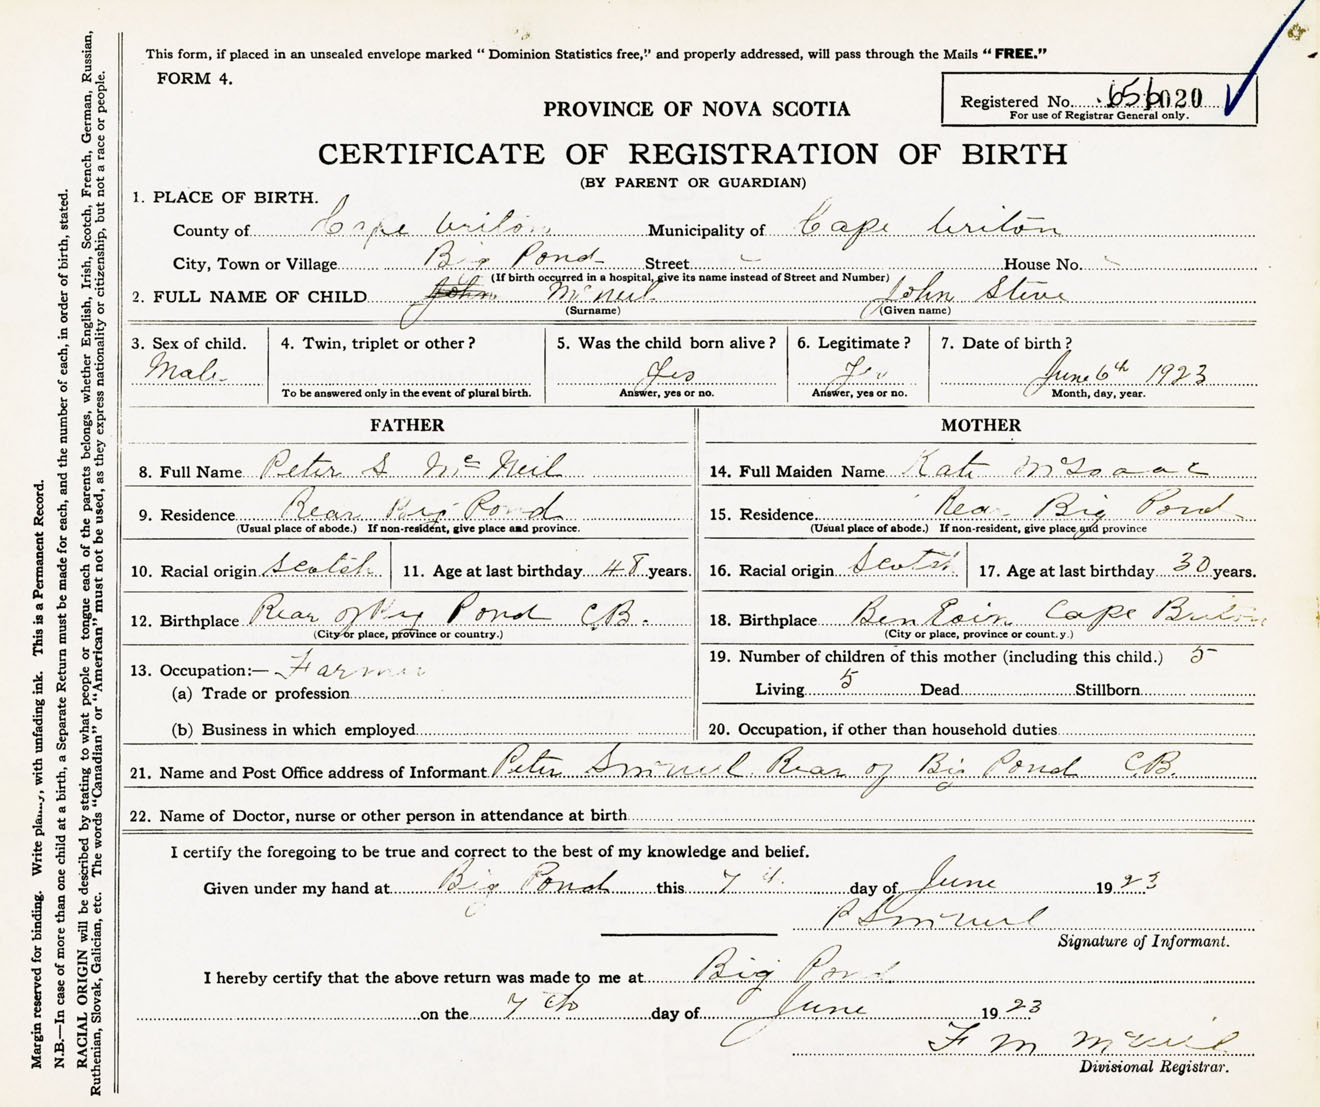 This form, if placed in an unsealed envelope marked “ Dominion Statistics free,” and properly addressed, will pass through the Mails “ FREE.”
FORM 4.
Registered No. 656020
For use of Registrar General only.
PROVINCE OF NOVA SCOTIA
CERTIFICATE OF REGISTRATION OF BIRTH
(BY PARENT OR GUARDIAN)
1. PLACE OF BIRTH.
County of Cape Briton Municipality of Cape Briton
City, Town or Village Big Pond Street House No.
(If birth occurred in a hospital, give its name instead of Street and Number)
2. FULL NAME OF CHILD John McNeil John Steve
(Surname) (Given name)
3. Sex of child. 4. Twin, triplet or other ? 5. Was the child born alive ? 6. Legitimate ? 7. Date of birth ?
Male Yes Yes June 6th 1923
To be answered only in the event of plural birth. Answer, yes or no. Answer, yes or no. Month, day, year.
FATHER
8. Full Name Peter S McNeil
9. Residence Rear Big Pond
(Usual place of abode.) If non-resident, give place and province.
10. Racial origin Scotch 11. Age at last birthday 48 years.
12. Birthplace Rear of Big Pond C.B.
(City or place, province or country.)
13. Occupation:— Farmer
(a) Trade or profession
(b) Business in which employed
MOTHER
14. Full Maiden Name Kate McIsaac
15. Residence Rear Big Pond
(Usual place of abode.) If non-resident, give place and province
16. Racial origin Scotch 17. Age at last birthday 30 years.
18. Birthplace Ben Eoin Cape Briton
(City or place, province or count.y.)
19. Number of children of this mother (including this child.) 5
Living 5 Dead Stillborn
20. Occupation, if other than household duties
21. Name and Post Office address of Informant Peter S McNeil Rear of Big Pond C.B.
22. Name of Doctor, nurse or other person in attendance at birth
I certify the foregoing to be true and correct to the best of my knowledge and belief.
Given under my hand at Big Pond this 7th day of June 1923
P S McNeil
Signature of Informant.
I hereby certify that the above return was made to me at Big Pond
on the 7th day of June 1923
F M McNeil
Divisional Registrar.
Margin reserved for binding. Write plainly, with unfading ink. This is a Permanent Record.
N.B.—In case of more than one child at a birth, a Separate Return must be made for each, and the number of each, in order of birth, stated.
RACIAL ORIGIN will be described by stating to what people or tongue each of the parents belongs, whether English, Irish, Scotch, French, German, Russian,
Ruthenian, Slovak, Galician, etc. The words “Canadian” or “American” must not be used, as they express nationality or citizenship, but not a race or people.